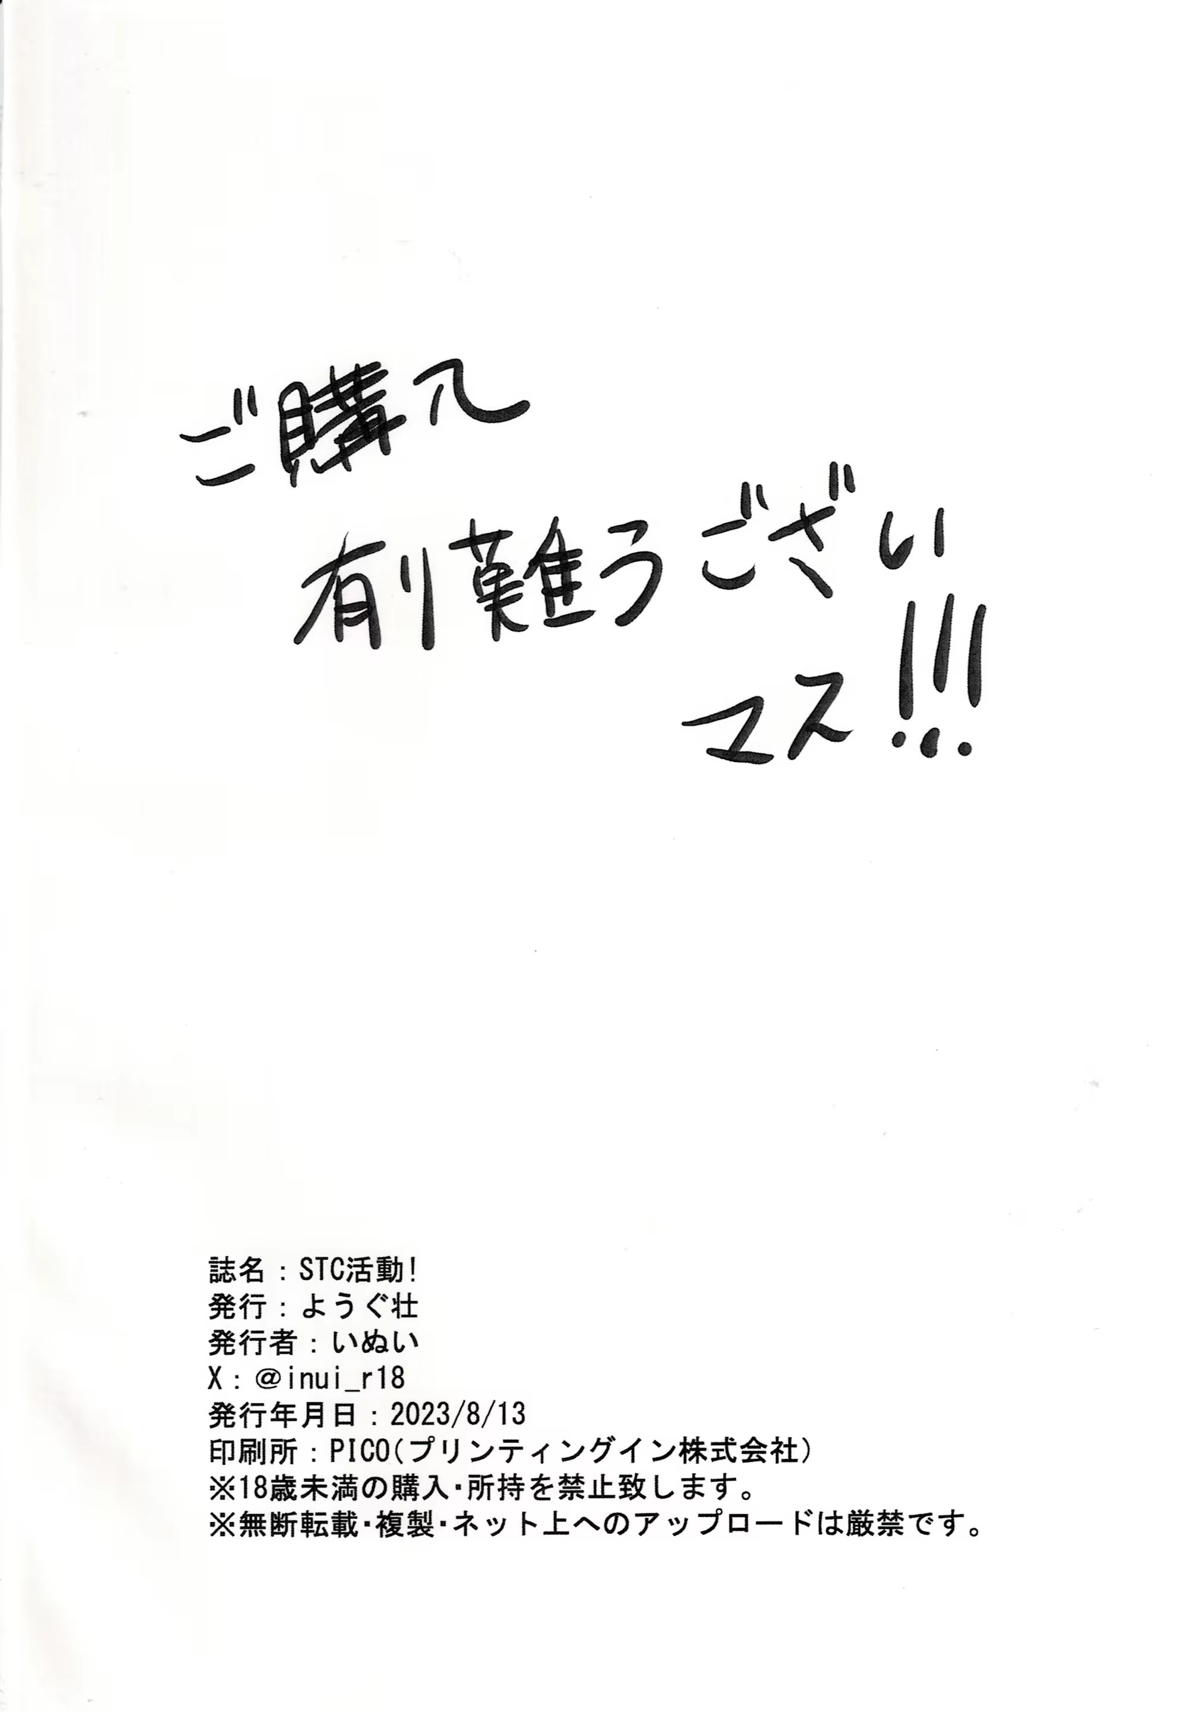 ご購入
有り難うござい
マス!!!
誌名：STC活動!
発行：ようぐ壮
発行者：いぬい
X：@inui_r18
発行年月日：2023/8/13
印刷所：PICO(プリンティングイン株式会社)
※18歳未満の購入・所持を禁止致します。
※無断転載・複製・ネット上へのアップロードは厳禁です。